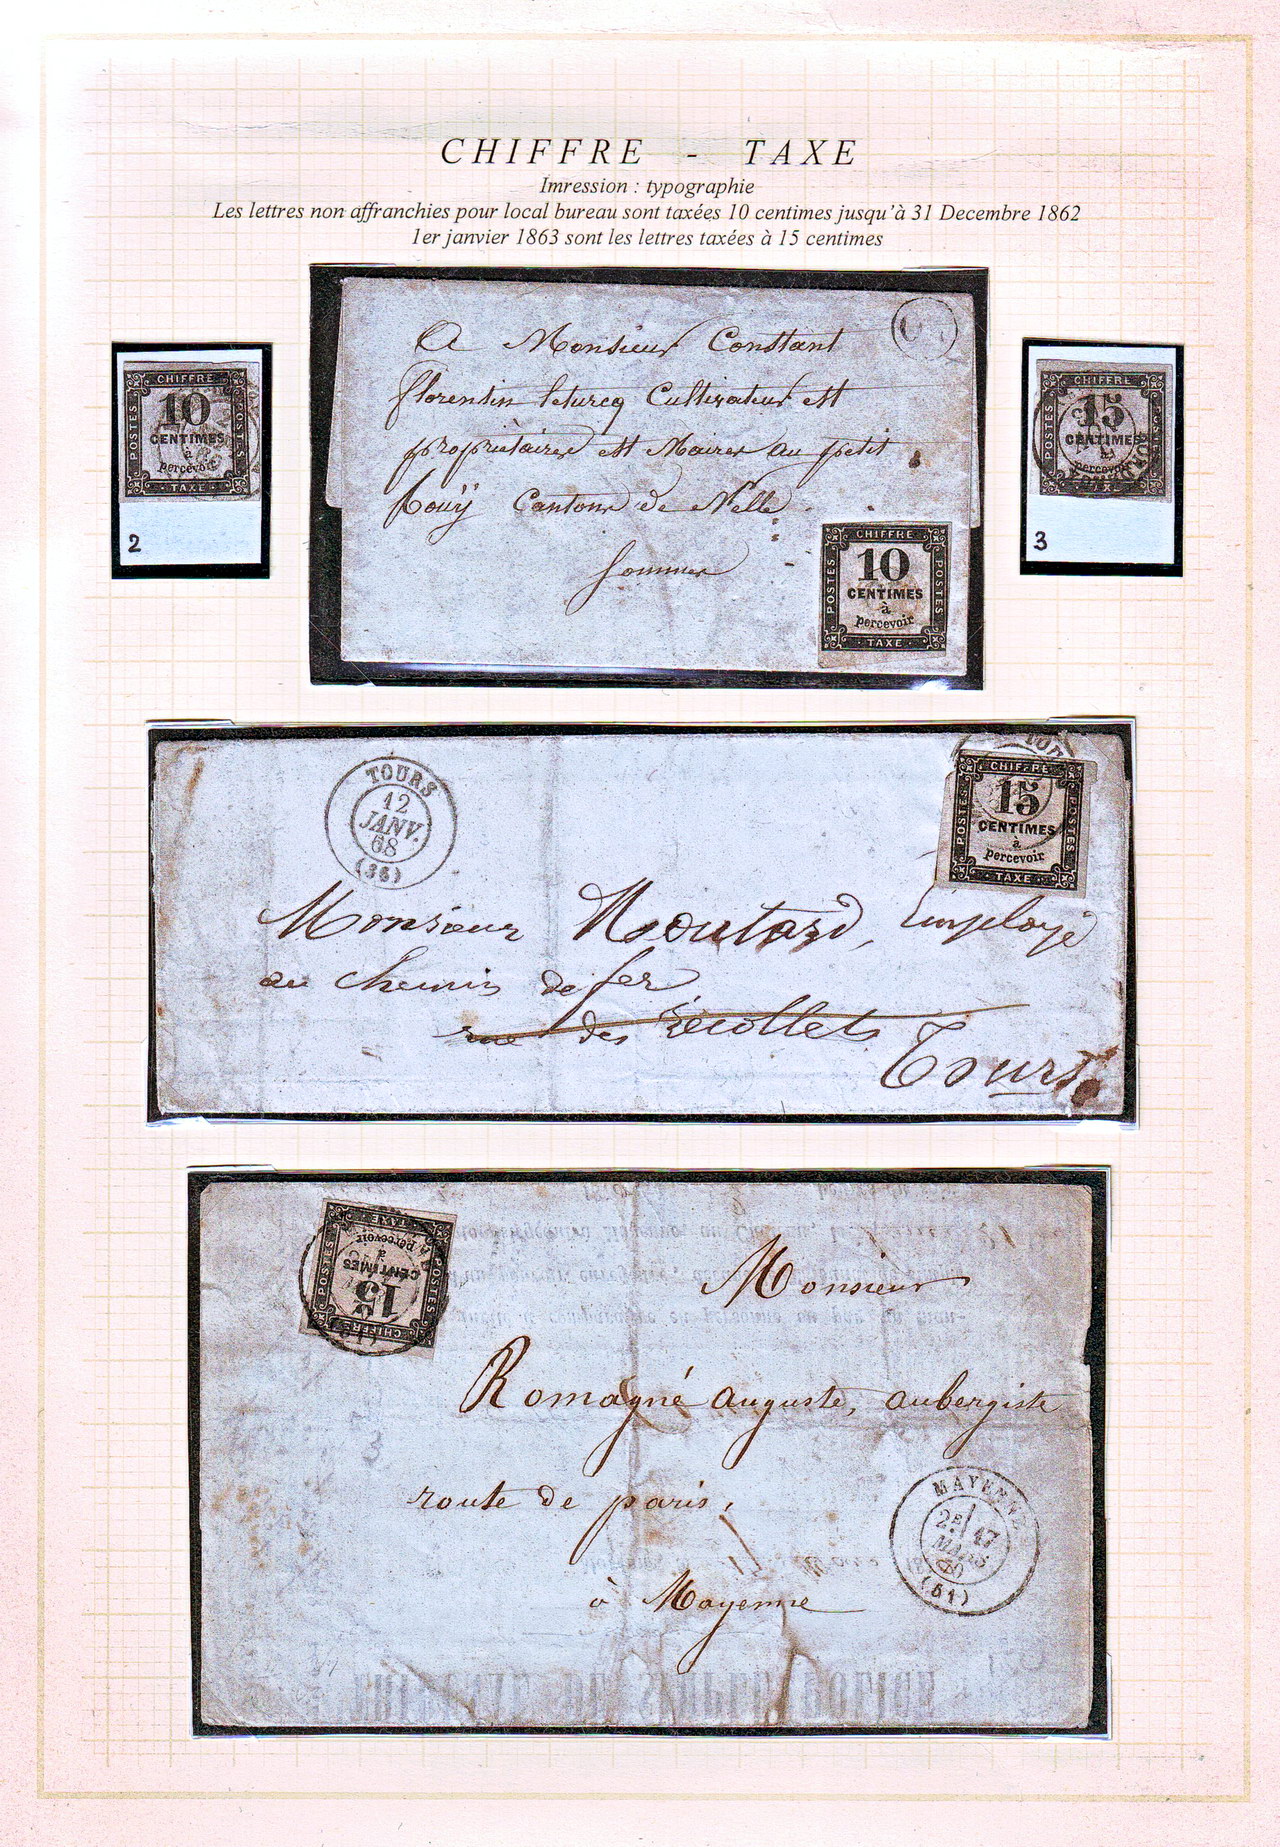 CHIFFRE - TAXE
Imression : typographie
Les lettres non affranchies pour local bureau sont taxées 10 centimes jusqu'à 31 Decembre 1862
1er janvier 1863 sont les lettres taxées à 15 centimes
CHIFFRE
POSTES
10
CENTIMES
à
percevoir
POSTES
TAXE
2
A Monsieur Constant
florentin leturcq Cultivateur et
propriètaires et Maires au petit
Rouÿ Canton de Nelle
Somme
CHIFFRE
POSTES
10
CENTIMES
à
percevoir
POSTES
TAXE
CHIFFRE
POSTES
15
CENTIMES
à
percevoir
TAXE
3
TOURS
12
JANV.
68
(36)
TOU
CHIFFRE
POSTES
15
CENTIMES
à
percevoir
POSTES
TAXE
Monsieur Moutard, Employé
au chemin de fer
rue des Récollets
Tours.
CHIFFRE
POSTES
15
CENTIMES
à
percevoir
POSTES
TAXE
Monsieur
Romagné auguste, aubergiste
route de paris,
à Mayenne
3
MAYENNE
2E 17
MARS
(51)